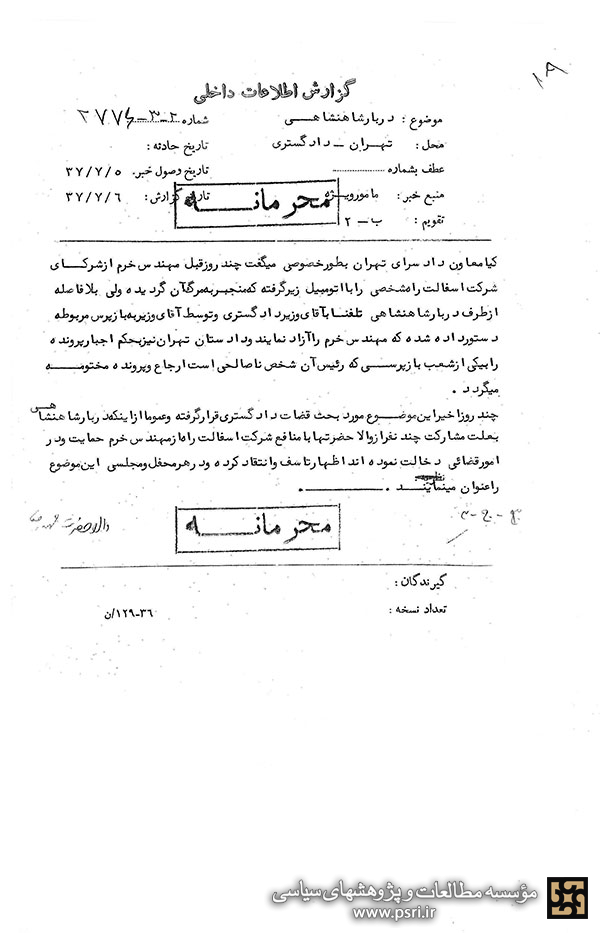 ۱۸
گزارش اطلاعات داخلی
موضوع : دربار شاهنشاهــی شماره ۲-۳-۲۷۷۴
محل : تهران - دادگستری تاریخ حادثه :
عطف بشماره تاریخ وصول خبر: ۳۷/۷/۵
منبع خبر : مامور ویژه تاریخ گزارش : ۳۷/۷/۶
محرمانــــه
تقویم : ب - ۲
کیا معاون دادسرای تهران بطور خصوصی میگفت چند روز قبل مهندس خرم از شرکای
شرکت اسفالت راه شخصی را با اتومبیل زیر گرفته که منجر به مرگ آن گردیده ولی بلافاصله
از طرف دربار شاهنشاهی تلفنا با آقای وزیر دادگستری و توسط آقای وزیر به بازپرس مربوطه
دستور داده شده که مهندس خرم را آزاد نمایند و دادستان تهران نیز بحکم اجبار پرونده
را بیکی از شعب بازپرسی که رئیس آن شخص ناصالحی است ارجاع و پرونده مختومـــه
میگردد .
چند روز اخیر این موضوع مورد بحث قضات دادگستری قرار گرفته و عموما از اینکه دربار شاهنشاهی
بعلت مشارکت چند نفر از والاحضرتها با منافع شرکت اسفالت راه از مهندس خرم حمایت و در
امور قضائی دخالت نموده اند اظهار تاسف و انتقاد کرده و در هر محفل و مجلسی این موضوع
را عنوان مینمایند .
محرمانــــه
والاحضرت
گیرندگان :
تعداد نسخه :
۳۶-۱۲۹/ن
مؤسسه مطالعات و پژوهشهای سیاسی
www.psri.ir